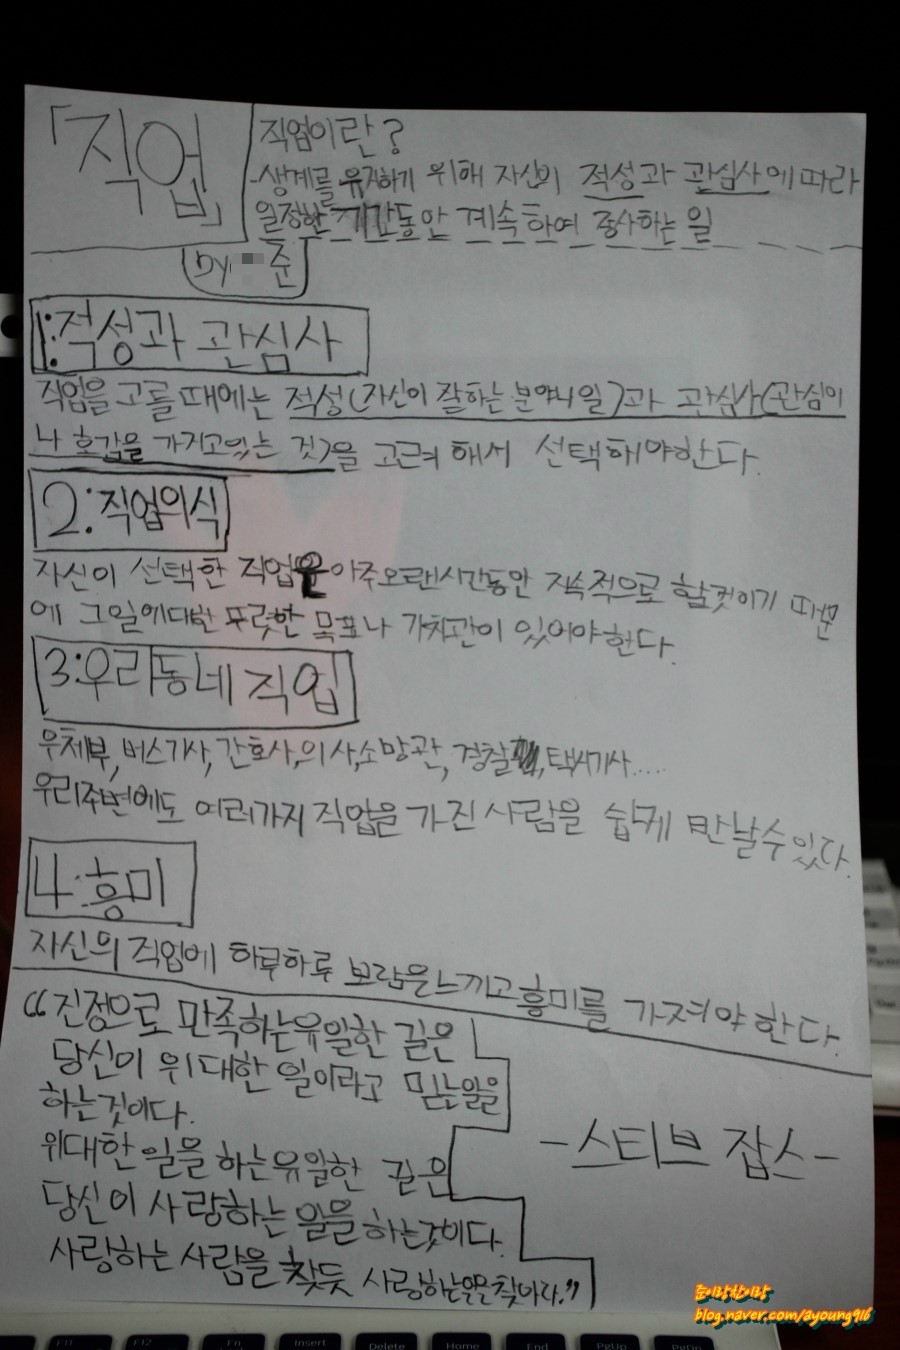 「직업」
직업이란?
-생계를 유지하기 위해 자신의 적성과 관심사에 따라
일정한 기간동안 계속하여 종사하는 일
by 준
1:적성과 관심사
직업을 고를 때에는 적성(자신이 잘하는 분야나 일)과 관심사(관심이
나 호감을 가지고 있는 것)을 고근려 해서 선택해야한다.
2:직업의식
자신이 선택한 직업은 아주오랜시간동안 지속적으로 할것이기 때문
에 그일에대한 뚜렷한 목표나 가치관이 있어야한다.
3:우리동네 직업
우체부, 버스기사, 간호사, 의사, 소방관, 경찰, 택시기사.....
우리주변에도 여러가지 직업을 가진 사람을 쉽게 만날수있다.
4:흥미
자신의 직업에 하루하루 보람을느끼고 흥미를 가져야한다.
"진정으로 만족하는유일한 길은
당신이 위대한 일이라고 믿는일을
하는것이다.
위대한 일을 하는유일한 길은
당신이 사랑하는 일을 하는것이다.
사랑하는 사람을 찾듯 사랑하는일을찾아라."
-스티브 잡스-
F11
F12
Fn
Insert
Delete
Home
End
PgUp
PgDn
blog.naver.com/ayoung916